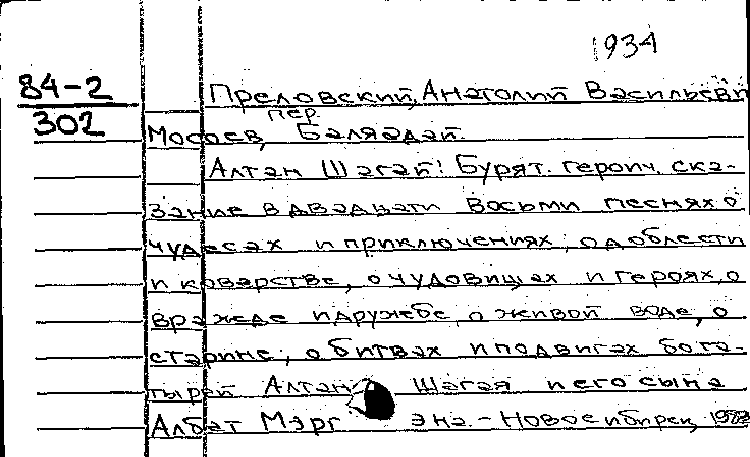 1934
84-2
302
Преловский, Анатолий Васильевич
пер.
Мосоев, Балаадай.
Алтан Шагай! Бурят. героич. ска-
зание в двадцати восьми песнях о
чудесах и приключениях; о доблести
и коварстве, о чудовищах и героях, о
вражде и дружбе, о живой воде, о
старине, о битвах и подвигах бога-
тырей Алтан Шагая и его сына
Албат Мэрг эна. - Новосибирск,